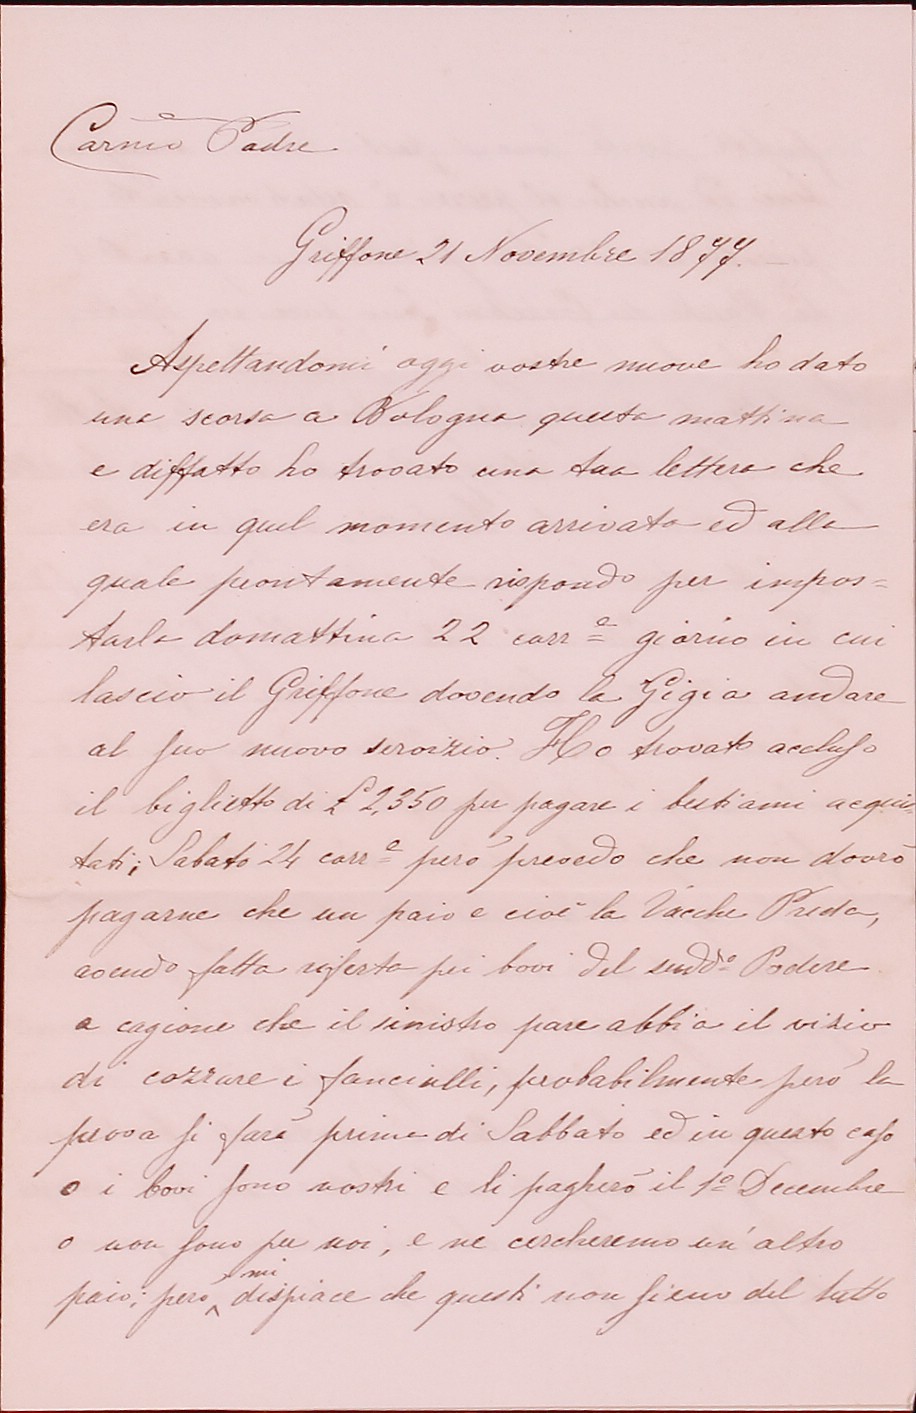 Carmo Padre
Griffone 21 Novembre 1877.
Aspettandomi oggi vostre nuove ho dato
una scorsa a Bologna questa mattina
e diffatto ho trovato una tua lettera che
era in quel momento arrivata ed alla
quale prontamente rispondo per impos=
tarla domattina 22 corre giorno in cui
lascio il Griffone dovendo la Gigia andare
al suo nuovo servizio. Ho trovato accluso
il biglietto di £ 2,350 per pagare i bestiami acquis
tati; Sabato 24 corre però prevedo che non dovrò
pagarne che un paio e cioè la Vacche Preda,
avendo fatta riferta pei bovi del suddo Podere
a cagione che il sinistro pare abbia il vizio
di cozzare i fanciulli, probabilmente però la
prova si farà prima di Sabbato ed in questo caso
o i bovi sono nostri e li pagherò il 1o Decembre
o non sono per noi, e ne cercheremo un'altro
paio; però mi dispiace che questi non sieno del tutto